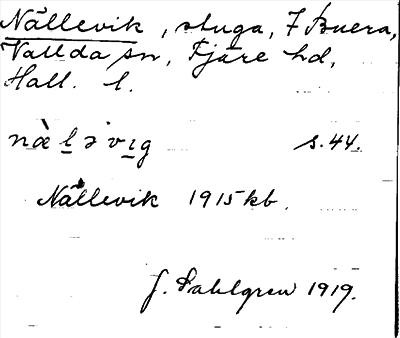 Nällevik, stuga, 7 Buera,
Vallda sn, Fjäre hd,
Hall. l.
nàl̠əvi̠g s. 44.
Nällevik 1915 kb.
J. Sahlgren 1919.